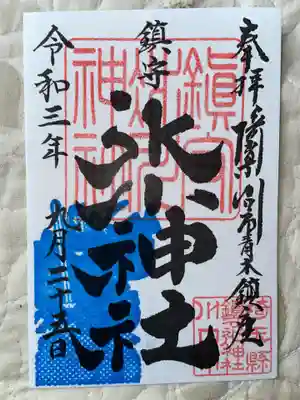 奉拝 埼玉県川口市青木鎮座
鎮守
氷川神社
令和三年 九月二十五日
鎮守
氷川
神社
埼玉縣
川口